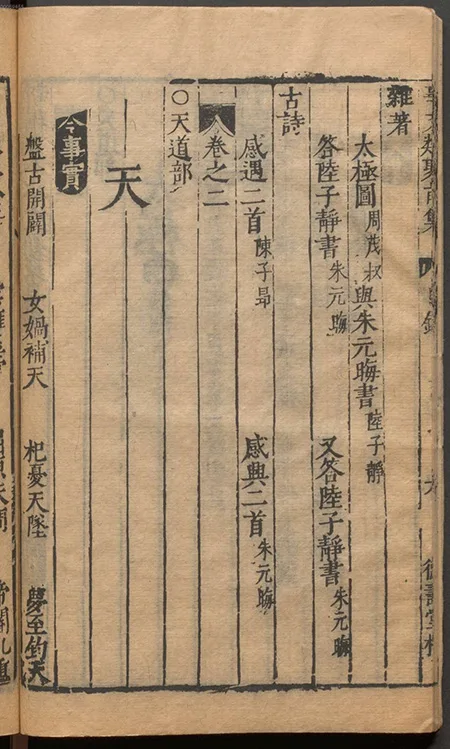 事文類聚前集
雜著
太極圖 周茂叔 與朱元晦書 陸子靜
答陸子靜書 朱元晦 又答陸子靜書 朱元晦
古詩
感遇二首 陳子昻 感興二首 朱元晦
卷之二
○天道部
天
今事實
盤古開闢 女媧補天 杞憂天墜 夢至鈞天